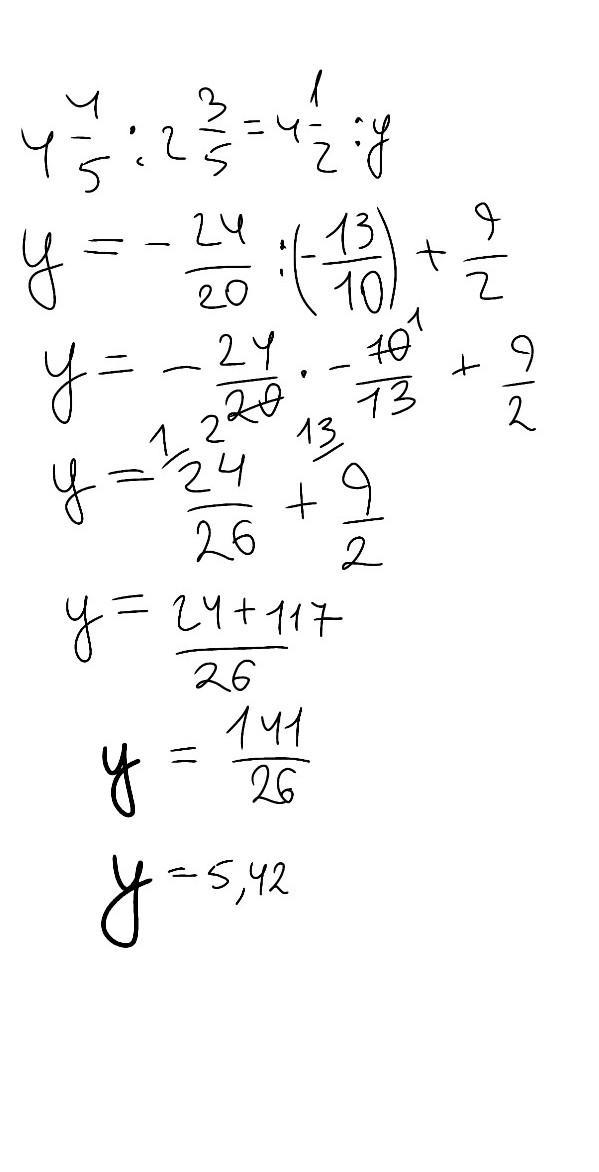 4 4/5 : 2 3/5 = 4 1/2 : y
y = - 24/20 : (- 13/10) + 9/2
y = - 24/20 · - 10/13 + 9/2
1 2 13 1
y = 24/26 + 9/2
y = 24+117/26
y = 141/26
y = 5,42